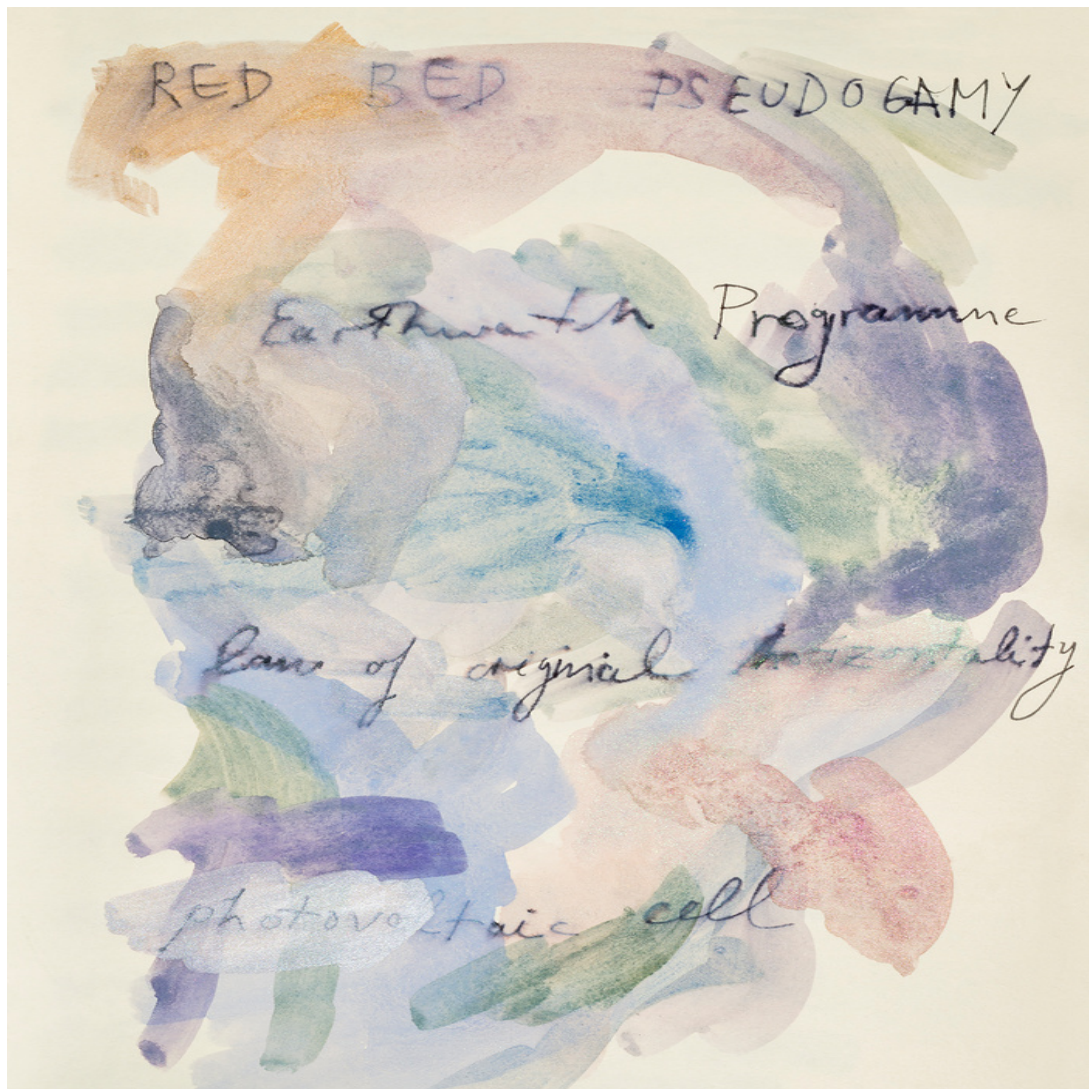 RED BED PSEUDOGAMY
Earthwatch Programme
law of original horizontality
photovoltaic cell